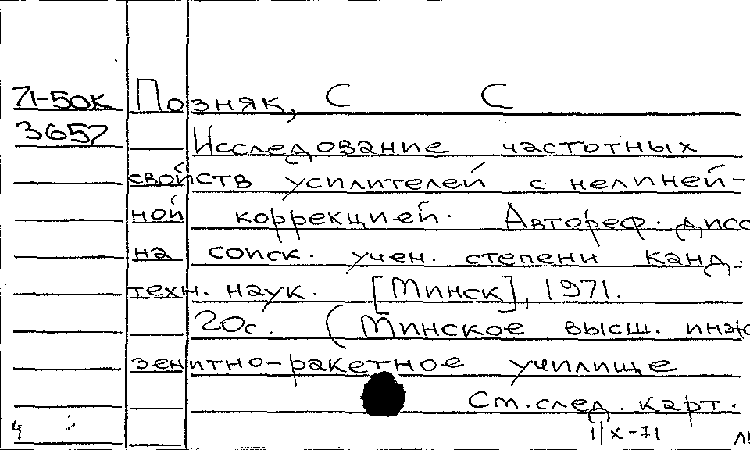 71-50к Позняк, С С
3657 Исследование частотных
свойств усилителей с нелиней-
ной коррекцией. Автореф. дисс
на соиск. учен. степени канд.
техн. наук. [Минск], 1971.
20с. (Минское высш. инж
зенитно-ракетное училище
См. след. карт.
4 1/X-71